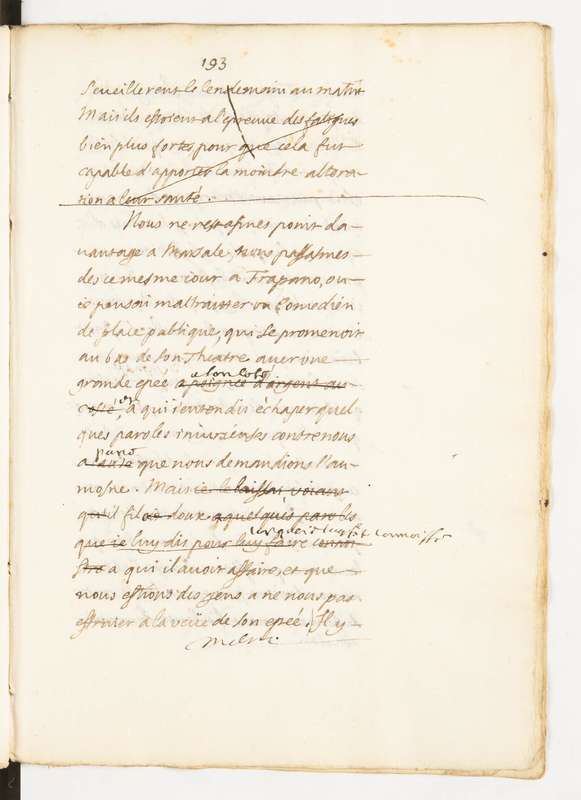 193
S'eveillerent le lendemain au matin
Mais ils estoient a l'epreuve des fatigues
bien plus fortes pour que cela fut
capable d'apporter la moindre altera-
tion a leur santé.
Nous ne restasmes point da-
vantage a Marsale, Nous passasmes
des ce mesme iour a Trapano, ou
ie pensai maltraitter un Comedien
de place publique, qui se promenoit
au bas de son Theatre avec une
a son coté
grande epee a poignee d'argent au
costé, a qui i'entendis échaper quel
ques paroles iniurieuses contre nous
que nous demandions l'au-
mosne. Mais ie le laissai, voiant
qu'il filoit doux a quelques paroles
connoistre
que ie luy dis pour luy faire connoi
stre a qui il avoit affaire, et que
nous estions des gens a ne nous pas
effraier a la veüe de son epeé. Il y